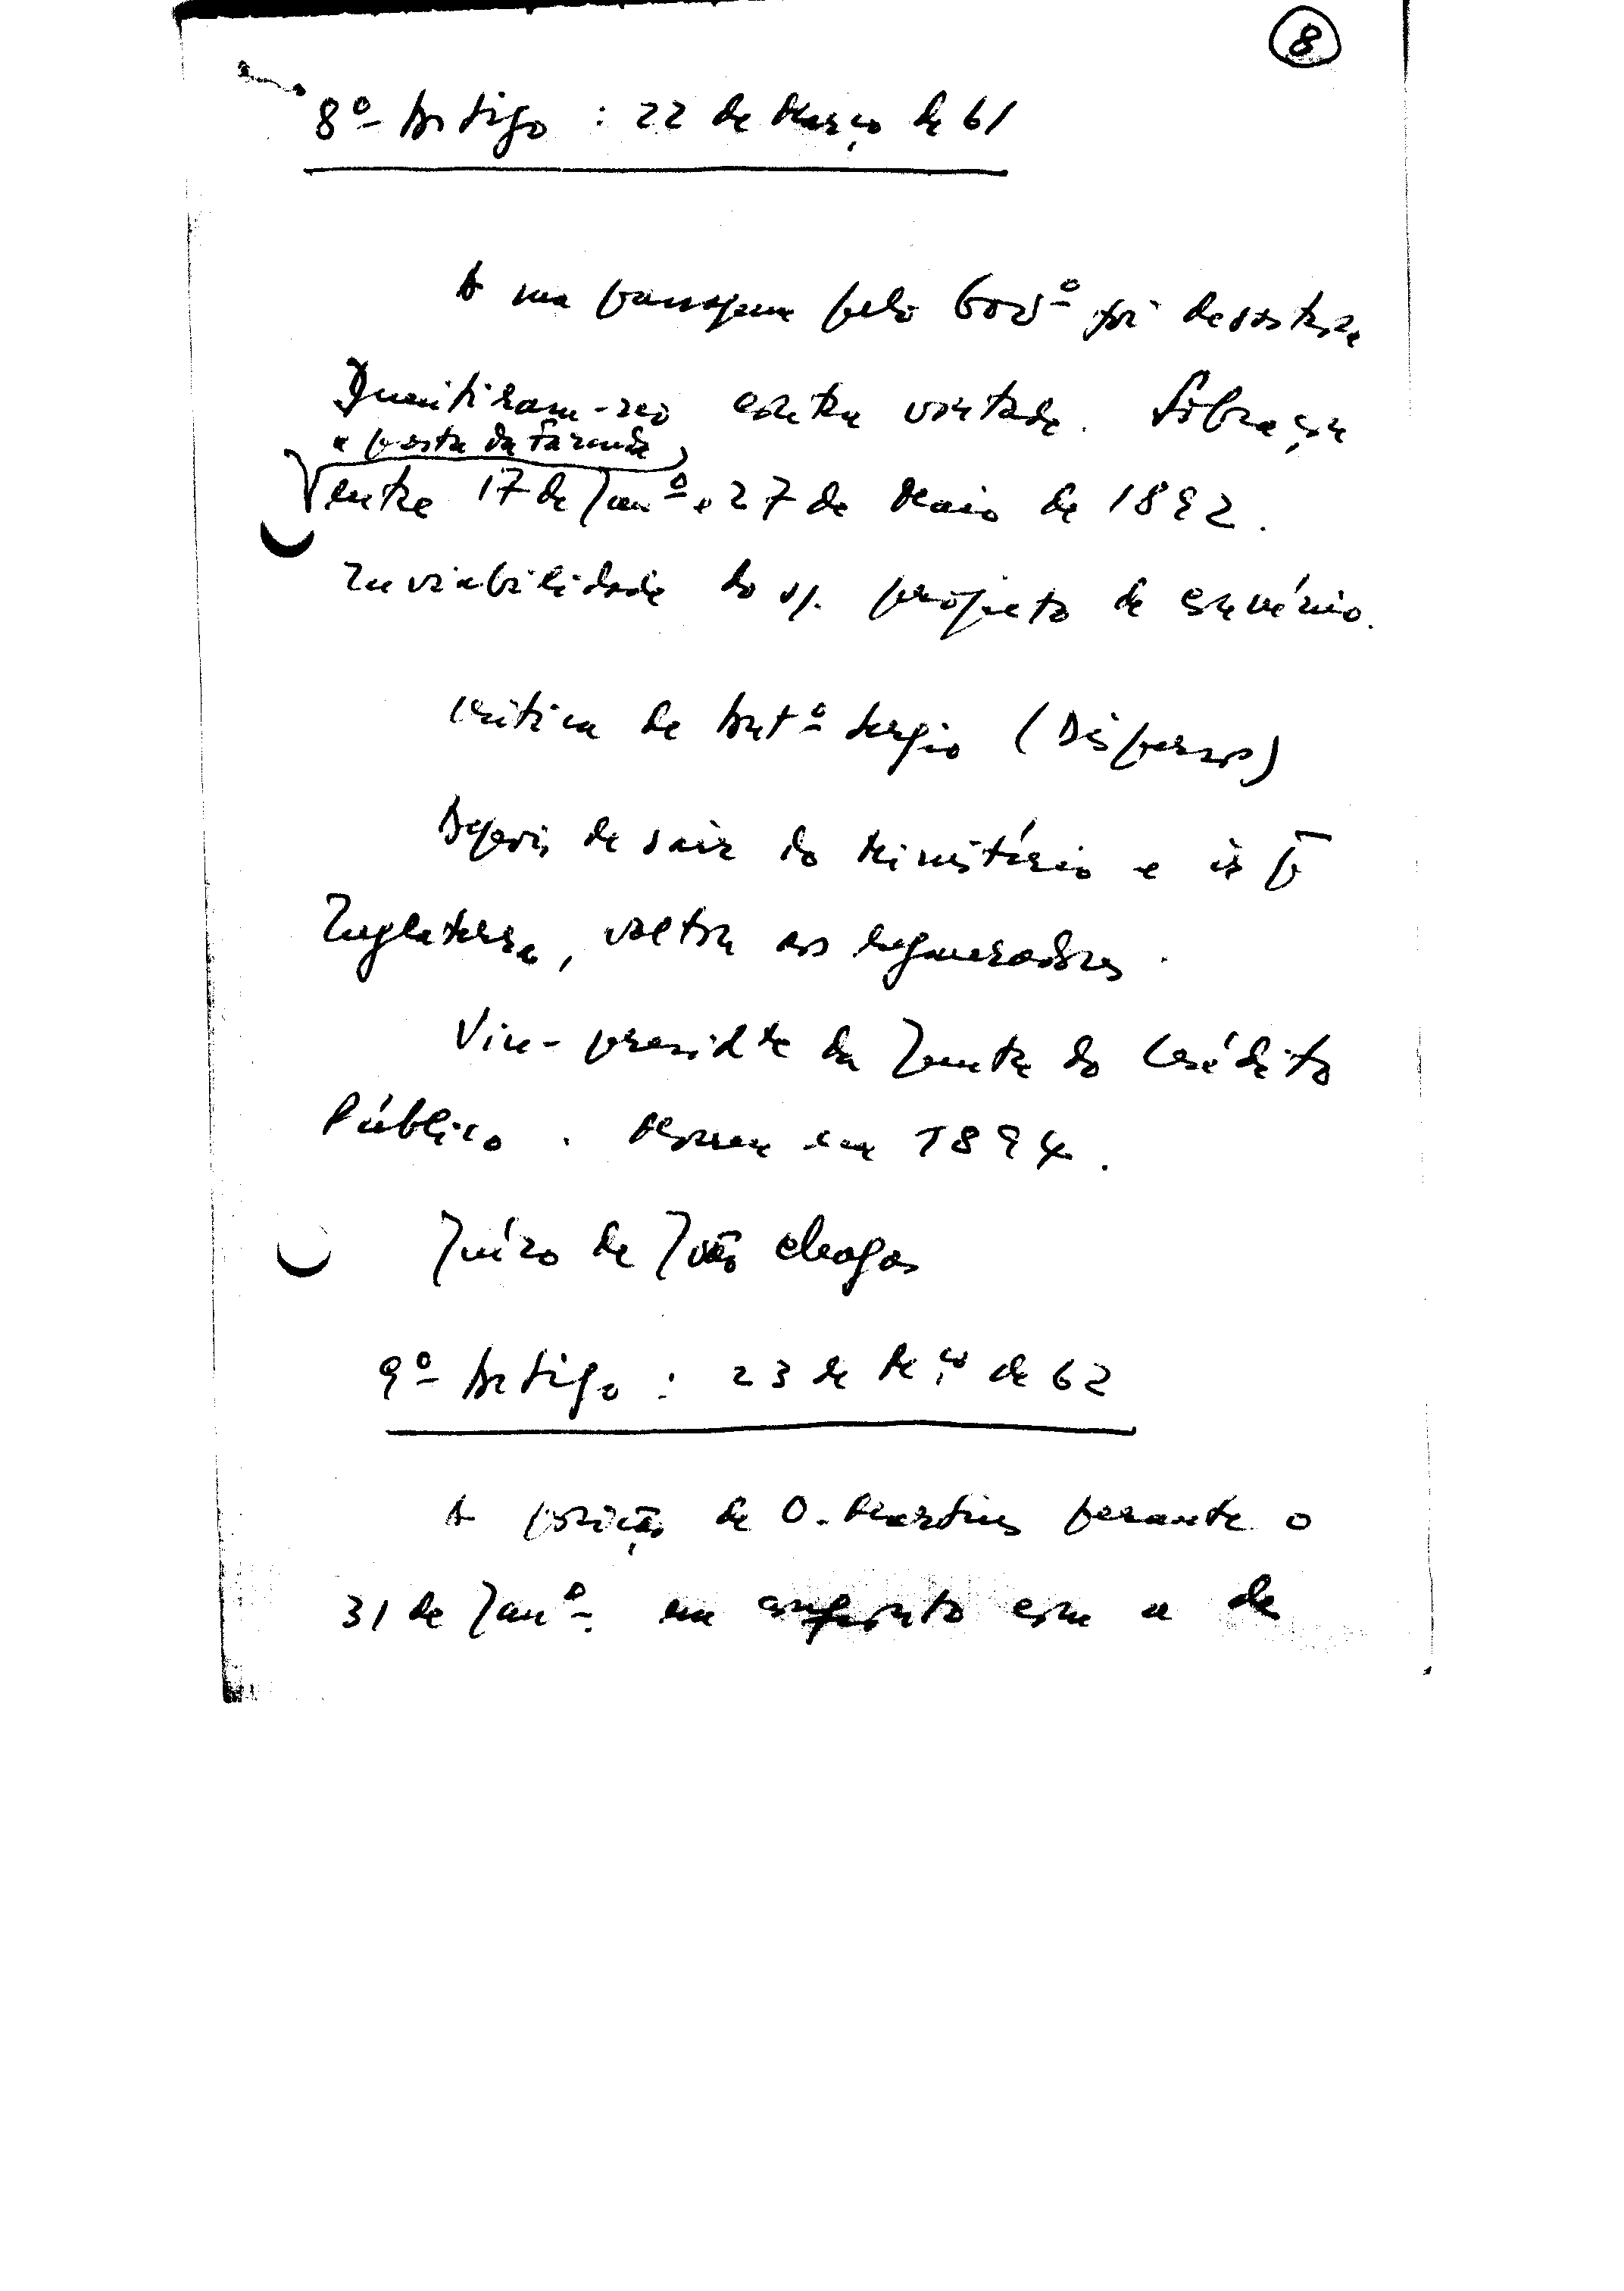 8
8º Artigo : 22 de Março de 61
A sua passagem pelo Govº foi desastrosa
Demitiram-no contra vontade. Sobraçou
a pasta da Fazenda
entre 17 de Janº e 27 de Maio de 1892.
Inviabilidade do s/. projecto de convénio.
Crítica de Antº Sergio (Dispersos)
Depois de sair do Ministério e ir p
Inglaterra, voltou aos regeneradores.
Vice-presidte da Junta do Crédito
Público. Morreu em 1894.
Juízo de João Chagas
9º Artigo : 23 de Mço de 62
A posição de O. Martins perante o
31 de Janº. em confronto com a de